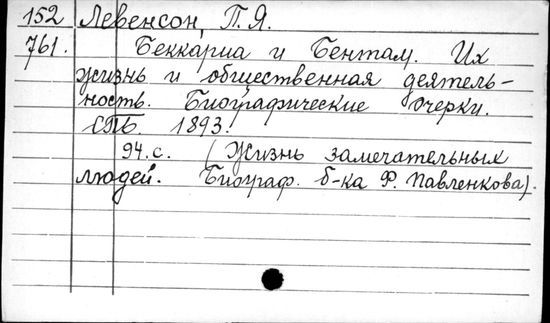 152 Левенсон, П.Я.
761. Беккариа и Бентам. Их
жизнь и общественная деятель-
ность. Биографические очерки.
СПБ. 1893.
94.с. (Жизнь замечательных
людей. Биограф. б-ка Ф. Павленкова).